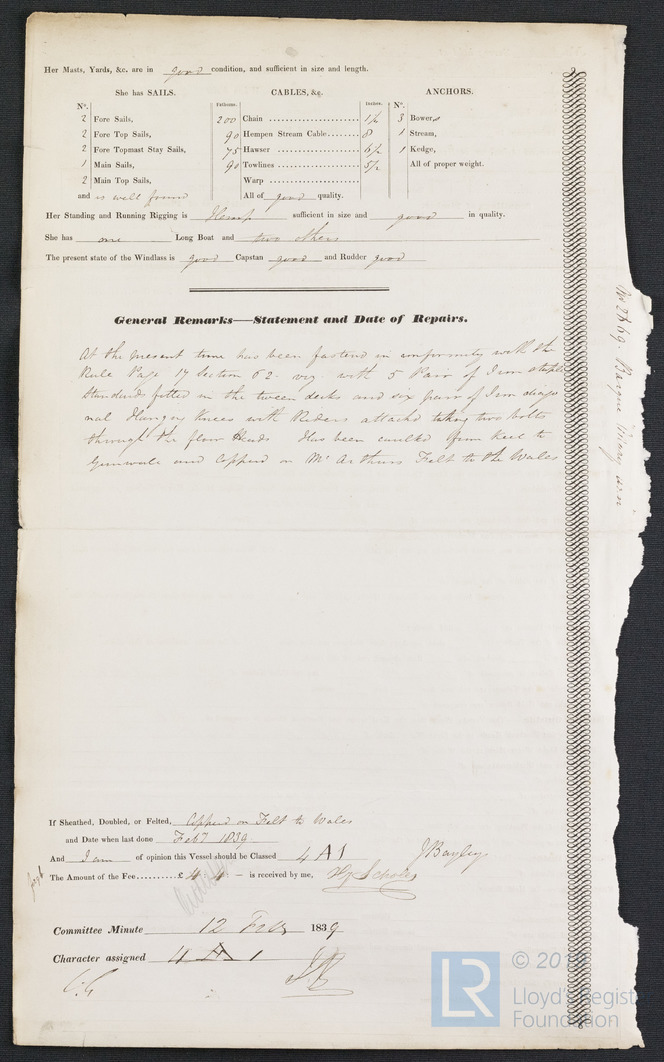 Her Masts, Yards, &c. are in good condition, and sufficient in size and length.
She has SAILS. CABLES, &c. ANCHORS.
No. Fathoms. Inches. No.
2 Fore Sails, 200 Chain 1 1/2 3 Bowers
2 Fore Top Sails, 90 Hempen Stream Cable 8 1 Stream,
2 Fore Topmast Stay Sails, 75 Hawser 6 1/2 1 Kedge,
1 Main Sails, 90 Towlines 5 1/2 All of proper weight.
2 Main Top Sails, Warp
and is well found All of good quality.
Her Standing and Running Rigging is Hemp sufficient in size and good in quality.
She has one Long Boat and two others
The present state of the Windlass is good Capstan good and Rudder good
General Remarks—Statement and Date of Repairs.
At the present time has been fastend in conformity with the
Rule Page 17 Section 62 - viz. with 5 Pair of Iron staple
Standards fitted in the tween decks and six pair of Iron diago
nal Hanging Knees with Riders attachd taking two bolts
through the floor Heads Has been caulked from Keel to
Gunwale and Copperd on Mc Arthurs Felt to the Wales
No 2869. Barque
If Sheathed, Doubled, or Felted, Copperd on Felt to Wales
and Date when last done Feb 7 1839
And I am of opinion this Vessel should be Classed 4 A 1 J Bayley
The Amount of the Fee £ 4 4 — is received by me, Hy Scholes
Committee Minute 12 Feby 1839
Character assigned 4 A 1
© 20
LR Lloyd's Regist
Foundation